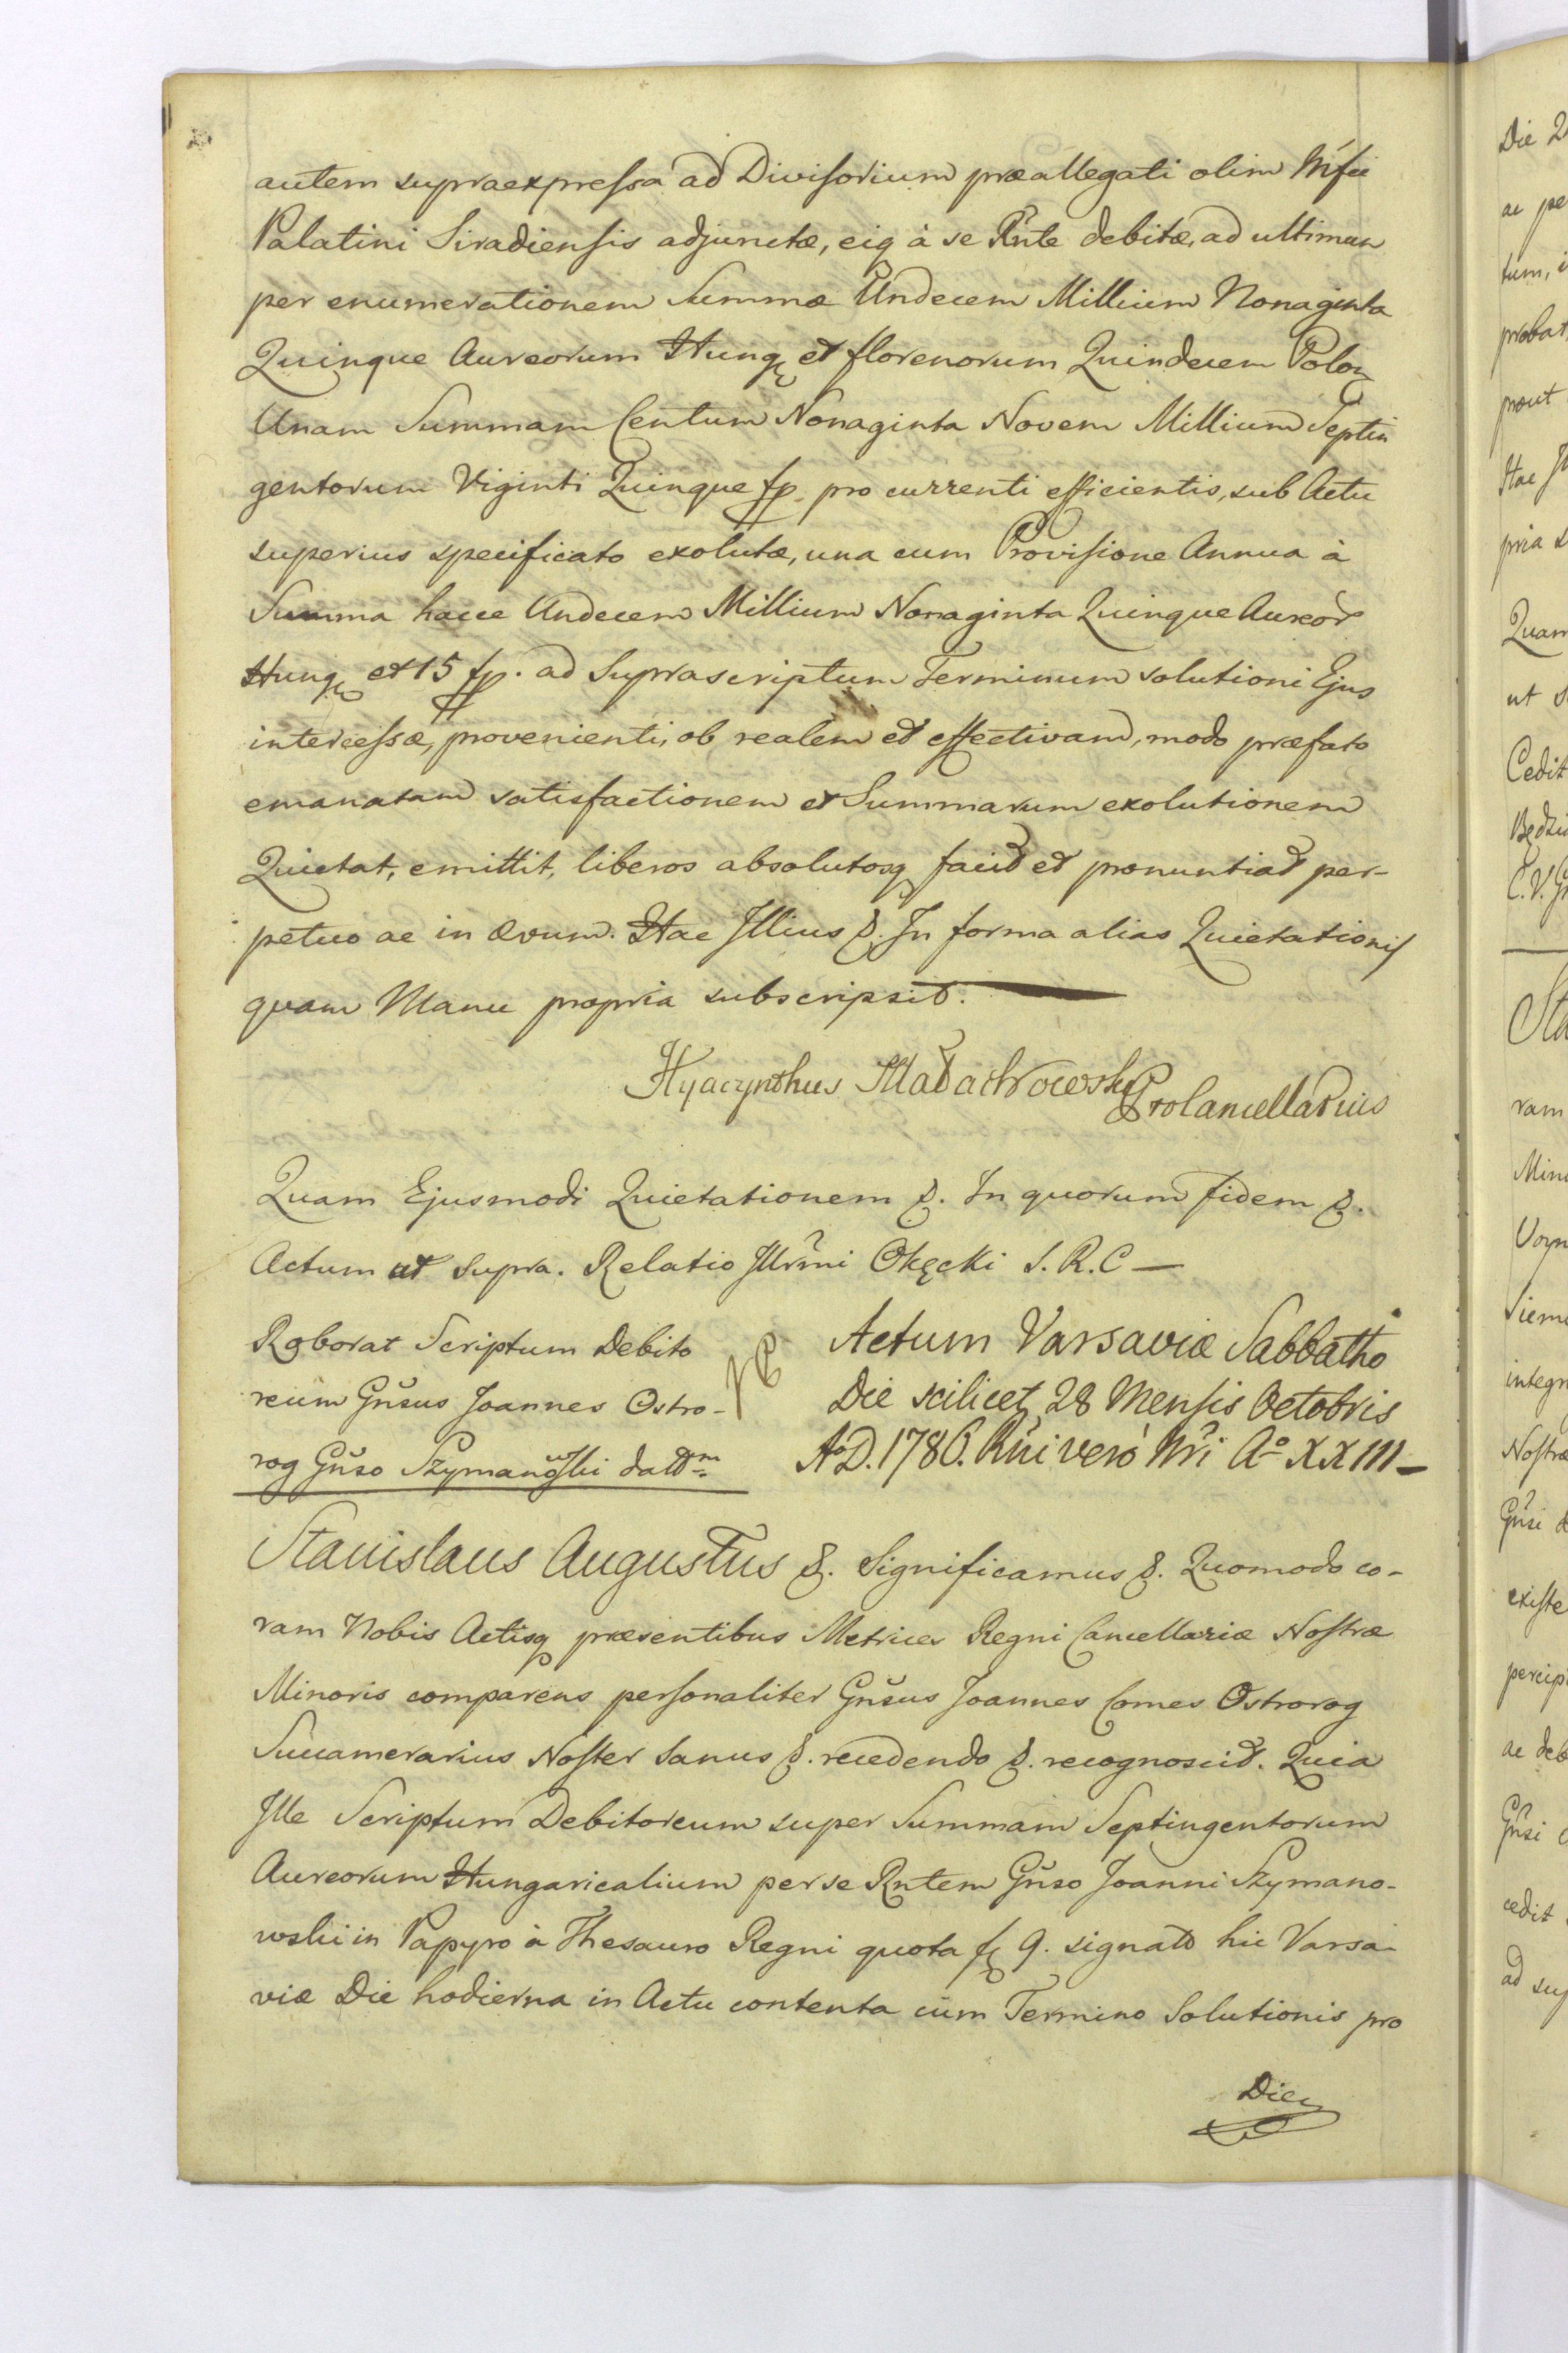 autem supraexpressa ad Divisorium præallegati olim Mfci
Palatini Siradiensis adjunctæ, eiq à se Rñte debitæ, ad ultimum
per enumerationem Summæ Undecem Millium Nonaginta
Quinque Aureorum Hung et florenorum Quindecem Polon
Unam Summam Centum Nonaginta Novem Millium Septin
gentorum Viginti Quinque fp. pro currenti efficientis, sub Actu
superius specificato exolutæ, una cum Provisione Annua à
Summa hacce Undecem Millium Nonaginta Quinque Aureor
Hung et 15 fp. ad Suprascriptum Terminum solutioni Ejus
intercessæ, provenienti, ob realem et effectivam, modo præfato
emanatam satisfactionem et Summarum exolutionem
Quietat, emittit, liberos absolutosq facit et pronuntiat per-
petuo ac in ævum. Hac Illius &. In forma alias Quietationis
quam Manu propria subscripsit.
Hyacynthus Małachowski Procancellarius
Quam Ejusmodi Quietationem &. In quorum fidem &.
Actum ut supra. Relatio Illrmi Okęcki S. R. C —
Roborat Scriptum Debito
reum Gñsus Joannes Ostro-
rog Gñso Szymanowski datt
Actum Varsaviæ Sabbatho
Die scilicet 28 Mensis Octobris
A.D. 1786. Rñi vero Nri Aº XXIII —
Stanislaus Augustus &. Significamus &. Quomodo co-
ram Nobis Actisq præsentibus Metrices Regni Cancellariæ Nostræ
Minoris comparens personaliter Gñsus Joannes Comes Ostrorog
Succamerarius Noster Sanus &. recedendo &. recognoscit. Quia
Ille Scriptum Debitoreum super Summam Septingentorum
Aureorum Hungaricalium per se Rntem Gñso Joanni Szymano-
wski in Papyro à Thesauro Regni quota f 9. signato hic Varsa-
viæ Die hodierna in Actu contenta cum Termino Solutionis pro
Die